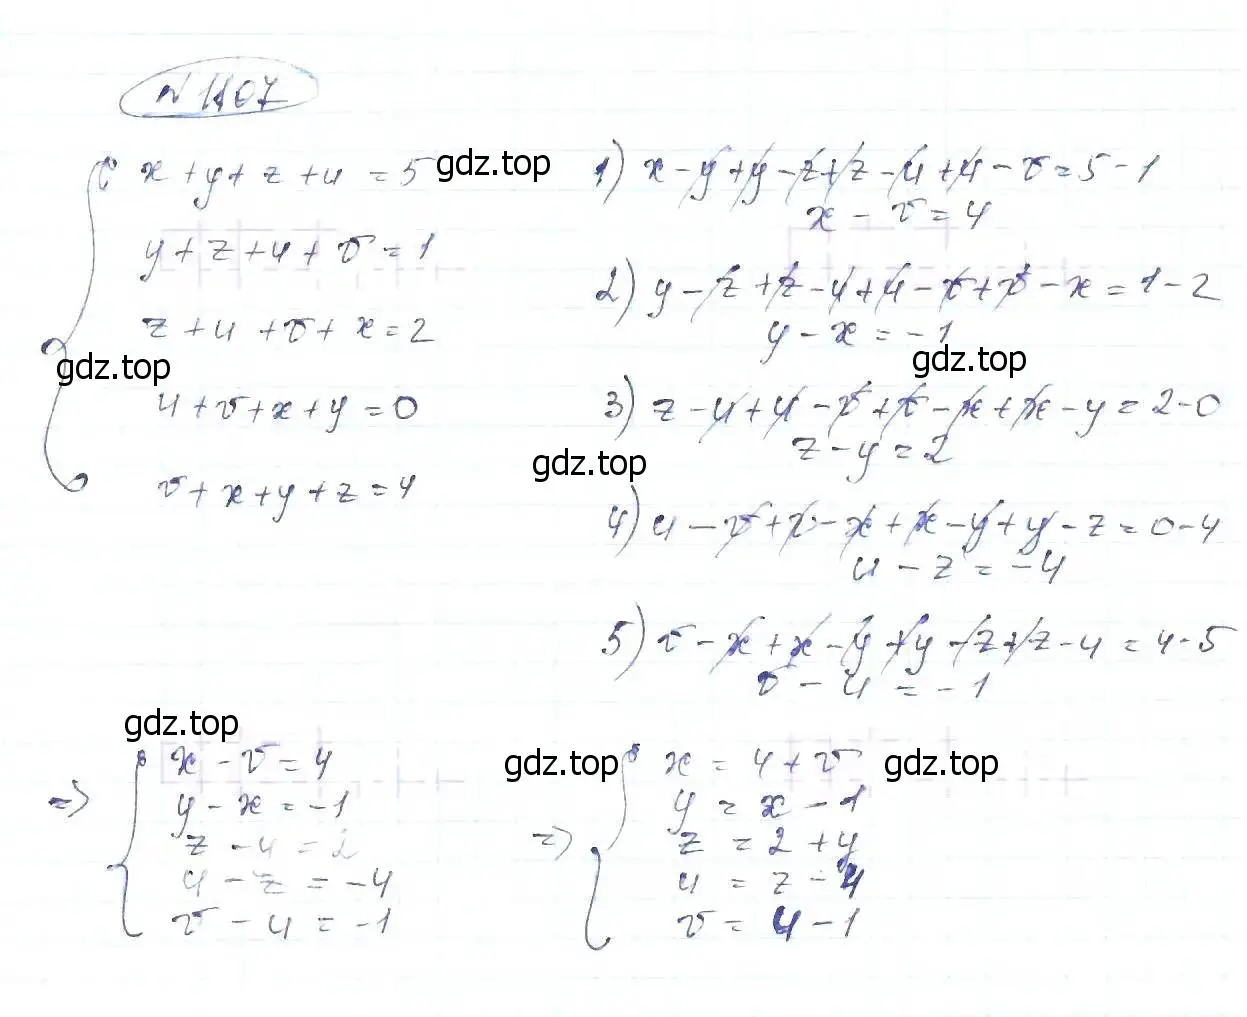 № 1107
x + y + z + u = 5
y + z + u + v = 1
z + u + v + x = 2
u + v + x + y = 0
v + x + y + z = 4
gdz.top
gdz.top
1) x - y + y - z + z - u + u - v = 5 - 1
x - v = 4
2) y - z + z - u + u - v + v - x = 1 - 2
y - x = -1
gdz.top
3) z - u + u - v + v - x + x - y = 2 - 0
z - y = 2
gdz.top
4) u - v + v - x + x - y + y - z = 0 - 4
u - z = -4
5) v - x + x - y + y - z + z - u = 4 - 5
v - u = -1
gdz.top
=> x - v = 4
y - x = -1
z - y = 2
u - z = -4
v - u = -1
gdz.top
gdz.top
=> x = 4 + v
y = x - 1
z = 2 + y
u = z - 4
v = u - 1